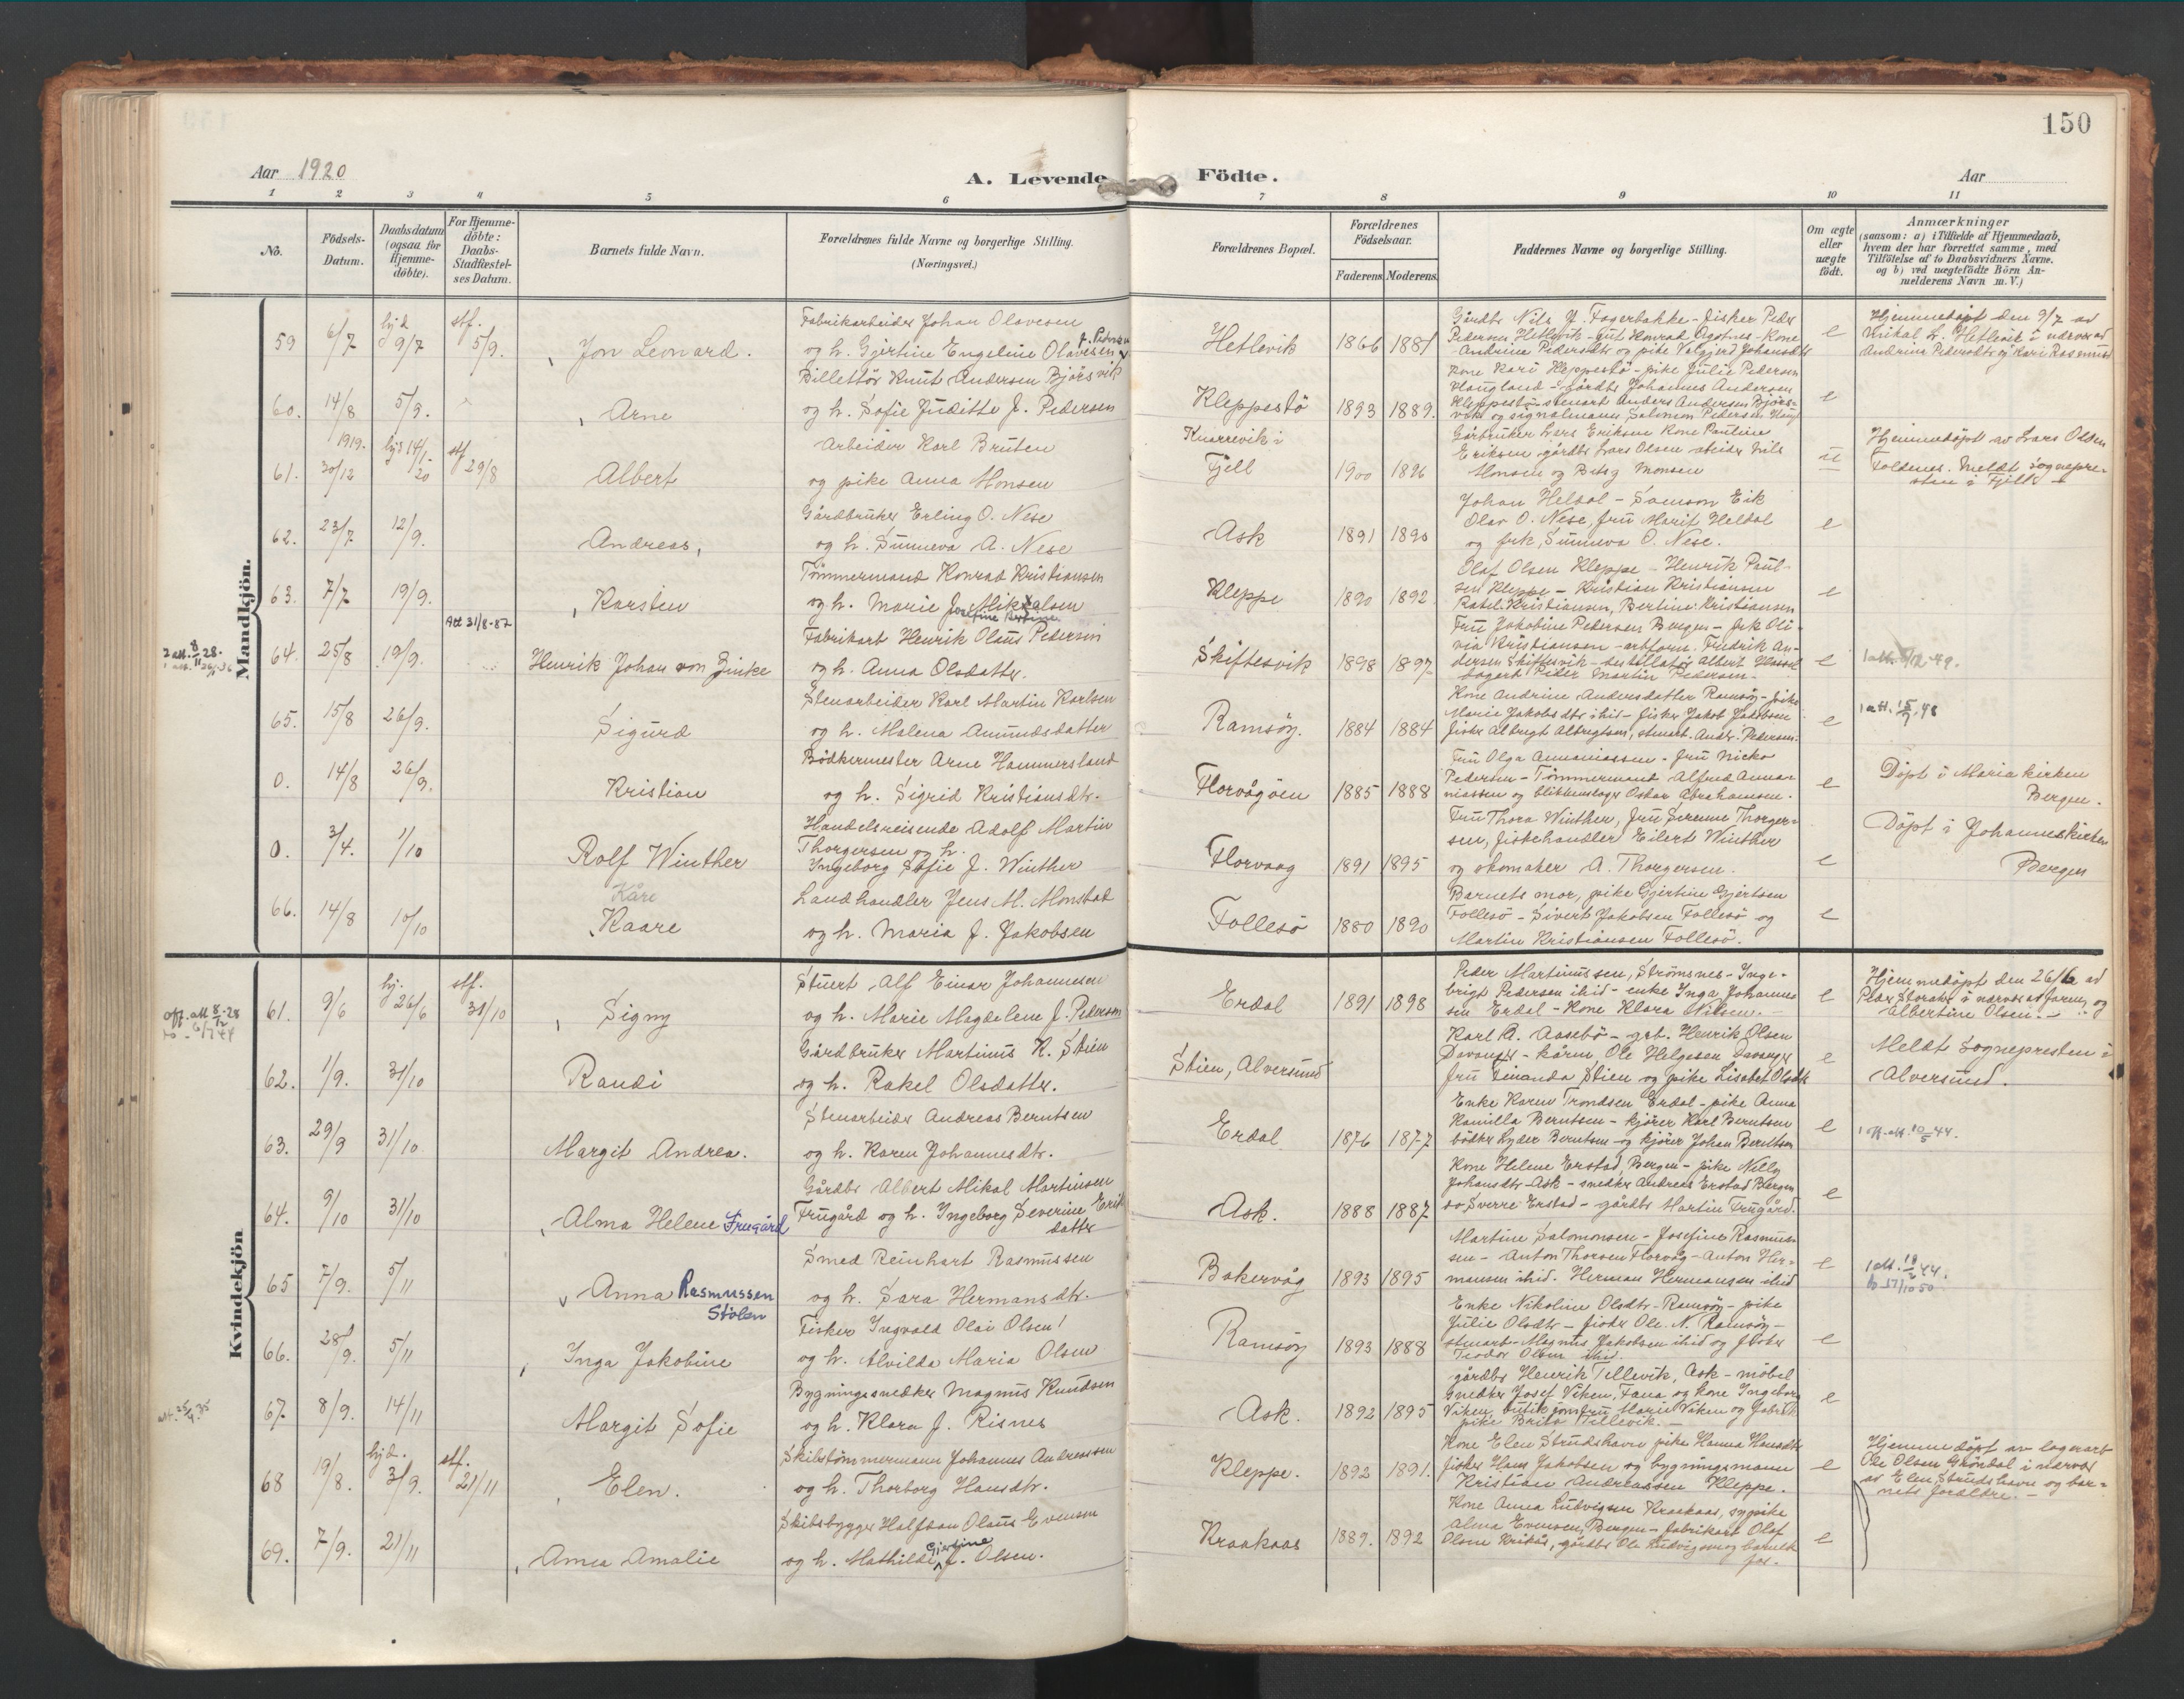 150
Aar 1920
A. Levende Födte.
Aar
1 2 3 4 5 6 7 8 9 10 11
No.
Födsels-Datum.
Daabsdatum (ogsaa for Hjemme-döbte).
For Hjemme-döbte: Daabs-Stadfæstel-ses Datum.
Barnets fulde Navn.
Forældrenes fulde Navne og borgerlige Stilling.
(Næringsvei.)
Forældrenes Bopæl.
Forældrenes Födselsaar.
Faderens. Moderens.
Faddernes Navne og borgerlige Stilling.
Om ægte eller uægte födt.
Anmærkninger
(saasom: a) i Tilfælde af Hjemmedaab,
hvem der har forrettet samme, med
Tilföielse af to Daabsvidners Navne.
og b) ved uægtefödte Börn An-
melderens Navn m. V.)
Mandkjön.
59 6/7 hjd 9/7 stf. 5/9. Jon Leonard.
Fabrikarbeider Johan Olavesen
og h. Gjertine Engeline Olavesen
Hetlevik 1866 1881
Gårdbr Nils Fagerbakke - fisker Peder
Pedersen Hetlevik - gut Konrad - Kone
Andrine Pedersdtr og pike Valgjerd Johansdtr
e
Hjemmedöpt den 9/7 av
Mikal L. Hetlevik i nærvær av
Andrine Pedersdtr og Kari Rasmusd
60. 14/8 5/9. Arne
Billettör Knut Andersen Björsvik
og h. Sofie Juditte J. Pedersen
Kleppestö 1893 1889.
Kone Kari Kleppestö - pike Julie Pedersen
Haugland - gårdbr Johannes Andersen
Kleppestö - stenarb Anders Andersen Björs-
vik og signalmann Salomon Pedersen Haug
e
61. 1919. 30/12 hjd 14/1-20 stf 29/8 Albert
Arbeider Karl Bruten
og pike Anna Monsen
Knarrevik i
Fjell 1900 1896
Gårbruker Lars Eriksen Kone Pauline
Eriksen gårdbr Lars Olsen arbeider Nils
Monsen og Betsy Monsen
u
Hjemmedöpt av Lars Olsen
Foldnes. Meldt sognepre-
sten i Fjell
62. 23/7 12/9. Andreas,
Gårdbruker Erling O. Nese
og h. Sunneva A. Nese
Ask 1891 1890
Johan Heldal - Samson Eik
Olav O. Nese, fru Marit Heldal
og frk, Sunneva O. Nese.
e
63. 7/7 19/9. Karsten
Tömmermand Konrad Kristiansen
og h. Marie J. Mikkalsen
Josefine Bertine
Kleppe 1890 1892
Olaf Olsen Kleppe - Henrik Paul-
sen Kleppe - Kristian Kristiansen
Rakel Kristiansen, Bertine Kristiansen
e
2 att. 8/11 28.
64. 25/8 19/9. Att 31/8-87 Henrik Johan von Zinke
Fabrikarb Henrik Olaus Pedersen
og h. Anna Olsdatter.
Skiftesvik 1898 1897
Fru Jakobine Pedersen Bergen - frk Oli-
via Kristiansen - arbform. Fredrik An-
dersen Skiftesvik - destillatör Albert Hassel
Peder Martin Pedersen -
e
65. 15/8 26/9. Sigurd
Stenarbeider Karl Martin Karlsen
og h. Malena Amundsdatter
Ramsöy. 1884 1884
Kone Andrine Andersdatter Ramsöy - pike
Marie Jakobsdtr ibid - fisker Jakob Jakobsen
fisker Albregt Albregtsen, stenarb. Anders Pedersen.
e
1 att. 15/7 48
0. 14/8 26/9. Kristian
Bödkermester Arne Hammersland
og h. Sigrid Kristiansdtr.
Florvågöen 1885 1888
Fru Olga Annaniassen - fru Micka
Pedersen - Tömmermand Alfred Anna-
niassen og blikkenslager Oskar Abrahamsen.
e
Döpt i Mariakirken
Bergen.
0. 3/4. 1/10 Rolf Winther
Handelsreisende Adolf Martin
Thorgersen og h.
Ingeborg Sofie J. Winther
Florvaag 1891 1895
Fru Thora Winther, fru Serenne Thorger-
sen, fiskehandler Eilert Winther
og skomaker A. Thorgersen.
e
Döpt i Johanneskirken
Bergen
66. 14/8 10/10 Kåre
Kaare
Landhandler Jens M. Monstad
og h. Maria J. Jakobsen
Follesö 1880 1890
Barnets mor, pike Gjertine Gjertsen
Follesö - Sivert Jakobsen Follesö og
Martin Kristiansen Follesö.
e
Kvindekjön
off. att 8/12-28
61. 9/6 hj. 26/6 stf. 31/10 Signy
Stuert Alf Einar Johannesen
og h. Marie Magdelene J. Pedersen
Erdal 1891 1898
Peder Martinussen, Strömsnes - Inge-
brigt Pedersen ibid - enke Inga Johannes
sen Erdal - Kone Klara Nilsen.
e
Hjemmedöpt den 26/6 av
Peder Storaker i nærvær av faren og
Albertine Olsen.
62. 1/9. 31/10 Randi
Gårdbruker Martinus K. Stien
og h. Rakel Olsdatter.
Stien, Alversund
Karl A. Aasebö - grt. Henrik Olsen
Davanger - kårm, Ole Helgesen Davanger
fru Finanda Stien og pike Lisabet Olsdtr
e
Meldt sognepresten i
Alversund.
63. 29/9 31/10 Margit Andrea.
Stenarbeider Andreas Berntsen
og h. Karen Johannesdtr.
Erdal 1876 1877
Enke Karen Trondsen Erdal - pike Anna
Kamilla Berntsen - kjörer Karl Berntsen
bödker Lyder Berntsen og kjörer Johan Berntsen
e
1 off. att. 10/5 44.
64. 9/10 31/10 Alma Helene Frugård
Gårdbr Albert Mikal Martinsen
Frugård og h. Ingeborg Severine Erik
datter
Ask. 1888 1887
Kone Helene Erstad, Bergen - pike Nelly
Johansdtr Ask - snedker Andreas Erstad Bergen
do Sverre Erstad - gårdbr Martin Frugård.
e
65 7/9. 5/11 Anna Rasmussen
Stølen
Smed Reinhart Rasmussen
og h. Sara Hermansdtr.
Bakervåg 1893 1895
Martine Salomonsen - Josefine Rasmus-
sen - Anton Thorsen Florvåg - Anton Her-
mansen ibid. Herman Hermansen ibid
e
1 att. 18/2 44.
66. 28/9. 5/11 Inga Jakobine
Fisker Ingvald Olai Olsen
og h. Alvilda Maria Olsen
Ramsöy 1893 1888
Enke Nikoline Olsdtr - Ramsöy - pike
Julie Olsdtr - fisker Ole N. Ramsöy -
stenarb - Magnus Jakobsen ibid og fisker
Teodor Olsen ibid.
e
67. 8/9. 14/11 Margit Sofie
Bygningssnedker Magnus Knudsen
og h. Klara J. Risnes
Ask. 1892 1895
gårdbr Henrik Tellevik, Ask - möbel
snedker Josef Viken, Fana og kone Ingeborg
Viken, butikjomfru Marie Viken og fabrik
pike Brita Tellevik.
e
68 19/8. hjd. 3/9. stf. 21/11 Elen.
Skibstömmermann Johannes Andreassen
og h. Thorborg Hansdtr.
Kleppe. 1892 1891.
Kone Elen Strudshavn pike Hanna Hansdtr
fisker Hans Jakobsen og bygningsmann
Kristian Andreassen Kleppe.
e
Hjemmedöpt av lagerarb
Ole Olsen Gröndal i nærvær
av Elen Strudshavn og bar-
nets forældre.
69. 7/9. 21/11 Anna Amalie
Skibsbygger Halfdan Olaus Evensen
og h. Mathilde Gjertine J. Olsen.
Kraakaas 1889. 1892
Kone Anna Ludvigsen Kraakaas, sypike
Alma Evensen, Bergen - fabrikarb Olaf
Olsen Kråkås, gårdbr Ole Ludvigsen og barnets
far.
e